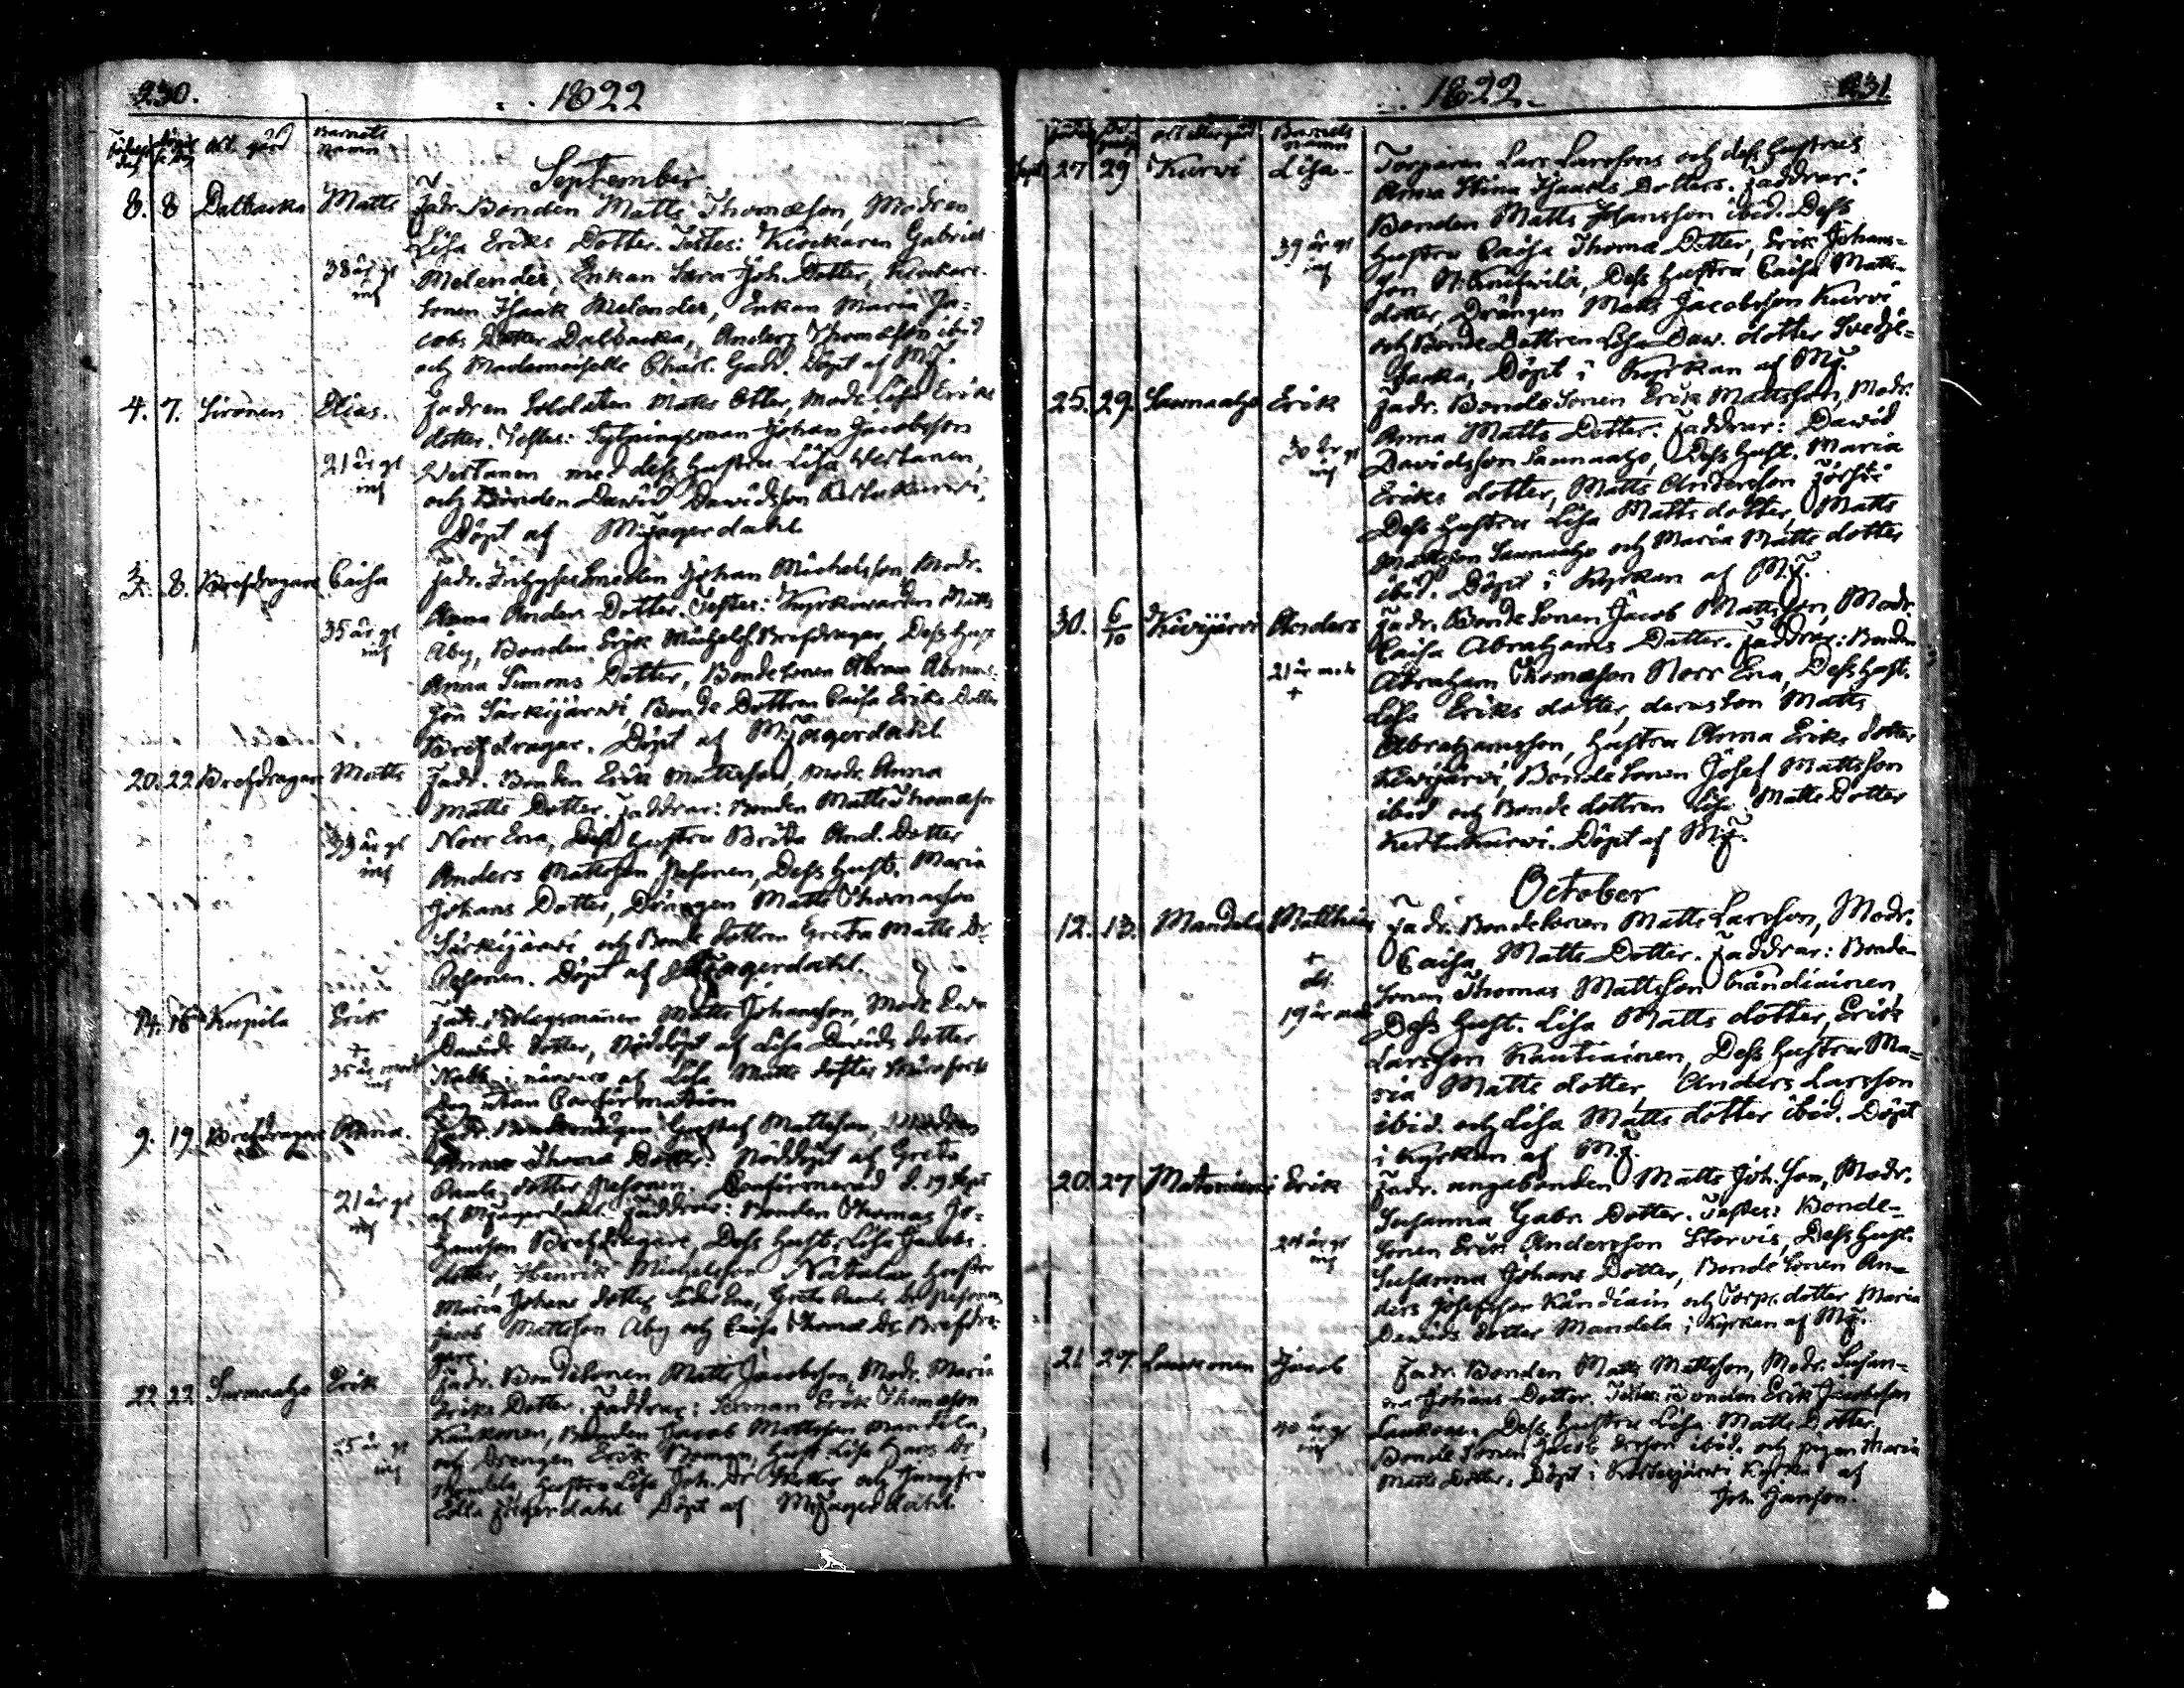 230. 1822
Födelse dag Döpelse dag Ort. gård Barnets namn
September
8. 8 Dalbacka Matts Fadr. Bonden Matts Thomæson, Modren
Lisa Eriks Dotter. Testes: Klockaren Gabriel
38 år gl Melender, Enkan Sara Joh. Dotter, Klockare-
sonen Isaak Melender, Enkan Maria Ja-
cobs Dotter Dalbacka, Anders Thomæson ibid
och Mademoiselle Charl. Gadd. Döpt af MJ.
4. 7. Sironen Elias. Fadren Soldaten Matts Otter, Modr. Lisa Eriks
dotter. Testes: Sytningsman Johan Jacobsson
21 år gl Vertanen med dess hustru Lisa Wertanen,
och Bonden Dawid Dawidsson Kertukurvi,
Döpt af M:Jagerdahl
3. 8. Brefdragare Caisa Fadr. Inhyses Smeden Johan Michelsson, Modr.
Anna Anders Dotter. Testes: Kyrkowarden Matts
35 år gl Åby, Bonden Erik Michels. Brefdragar, Dess Hust
Anna Simons Dotter, Bonde sonen Abram Abrams-
son Särkijärwi, Bonde Dottren Caisa Eriks Dotter
Brefdragar. Döpt af M:Jagerdahl
20. 22 Brefdragare Matts Fadr. Bonden Erik Mattsson, Modr. Anna
Matts Dotter. Faddrar: Bonden Matts Thomæson
39 år gl Norr Ena, Dess hustru Brita And. Dotter
Anders Mattsson Pesonen, Dess Hust. Maria
Johans Dotter, Drängen Matts Thomasson
Särkijärwi och Bonde dottren Greta Matts Dr.
Pesonen. Döpt af Jagerdahl.
14. 16 Knipila Erik Fadr. Matts Johansson, Modr. Ewa
+ Dawids dotter, Nöddöpt af Lisa Dawids dotter
35 år i närvaro af Lisa Matts dotter
Dog utan Confirmation
9. 19. Brefdragare Anna. Fadr. Gustaf Mattsson, Modren
Anna Thomæ Dotter. Nöddöpt af Greta
Pauls dotter Pesonen. Confirmerad d. 19 Sept
21 år gl af MJagerdahl. Faddrar: Bonden Thomas Jo-
hansson Brefdragare, Dess Hust. Lisa Jacobs
dotter, Henrik Michelsson Nabala, hustru
Maria Johans dotter Ena, Greta Pauls Dr. Pesonen,
Jacob Mattsson Åby och Caisa Thomæ Dr. Brefdra-
gare.
22 22 Saunaaho Erik Fadr. Bondesonen Matts Jacobsson, Modr. Maria
Eriks Dotter. Faddrar: Erik Thomasson
Kaukonen, Bonden Jacob Mattsson Mandela,
25 år gl och Drengen Erik Hust. Lisa Hans Dr
Mandela, Hustru Lisa Joh. Dr och Jungfru
Jagerdahl Döpt af M:Jagerdahl.
1822. 231
ort eller gård Barnets namn
Sept. 27 29 Kurwi Lisa- Torparen Lars Larssons och dess hustrus
Anna Stina Isaaks Dotters. Faddrar:
Bonden Matts Johansson ibid. Dess
39 år gl Hustru Caisa Thomæ Dotter, Erik Johans-
son Dess Hustru Caisa Matts-
dotter, Drängen Matts Jacobsson Kurvi
och Bonde Dottren Lisa Daw. dotter Svedje-
backa, Döpt i Kyrkan af MJ.
25. 29. Saunaaho Erik Fadr. Bonde Sonen Erik Mattsson, Modr.
Anna Matts Dotter. Faddrar: Dawid
30 år gl Davidsson Saunaaho, Dess hust. Maria
Eriks dotter, Matts Andersson
Dess hustru Lisa Matts dotter, Matts
Mattsson Saunaaho och Maria Matts dotter
ibid. Döpt i Kyrkan af MJ.
30. 6/10 Kivijärvi Anders Fadr. Bonde Sonen Jacob Mattsson, Modr.
Caisa Abrahams Dotter. Faddrar: Bonden
21 år Abraham Thomæson Norr Ena, Dess Hust.
+ Lisa Eriks dotter, deras son Matts
Abrahamsson, hustru Anna Eriks dotter
Kivijärvi, Bonde Sonen Josef Mattsson
ibid och Bonde dottren Lisa Matts Dotter
Kertukurvi. Döpt af MJ.
October
12. 13. Mandela Matthias Fadr. Bondesonen Matts Larsson, Modr.
+ Caisa Matts Dotter. Faddrar: Bonde-
Sonen Thomas Mattsson Kändiainen,
19 år Dess Hust. Lisa Matts dotter, Erik
Larsson Kautiainen, Dess Hustru Ma-
ria Matts dotter, Anders Larsson
ibid. och Lisa Matts dotter ibid. Döpt
i Kyrkan af MJ.
20. 27 Erik Fadr. ungebonden Matts Joh. son, Modr.
Susanna Gabr. Dotter. Testes: Bonde-
24 år gl sonen Erik Andersson Storvis, Dess Hust.
Susanna Johans Dotter, Bonde Sonen An-
ders Josefsson Kändiain och Torp. dotter Maria
Dawids dotter Mandela i Kyrkan af MJ.
21 27. Laukonen Jacob Fadr. Bonden Matts Mattsson, Modr. Susan-
na Johans Dotter. Testes: Bonden Erik Jacobsson
40 år gl Laukonen, Dess Hustru Lisa Matts Dotter,
Bonde Sonen Jacob Ersson ibid. och pigan Maria
Matts Dotter. Döpt i Kyrka af
Joh. Hanson.